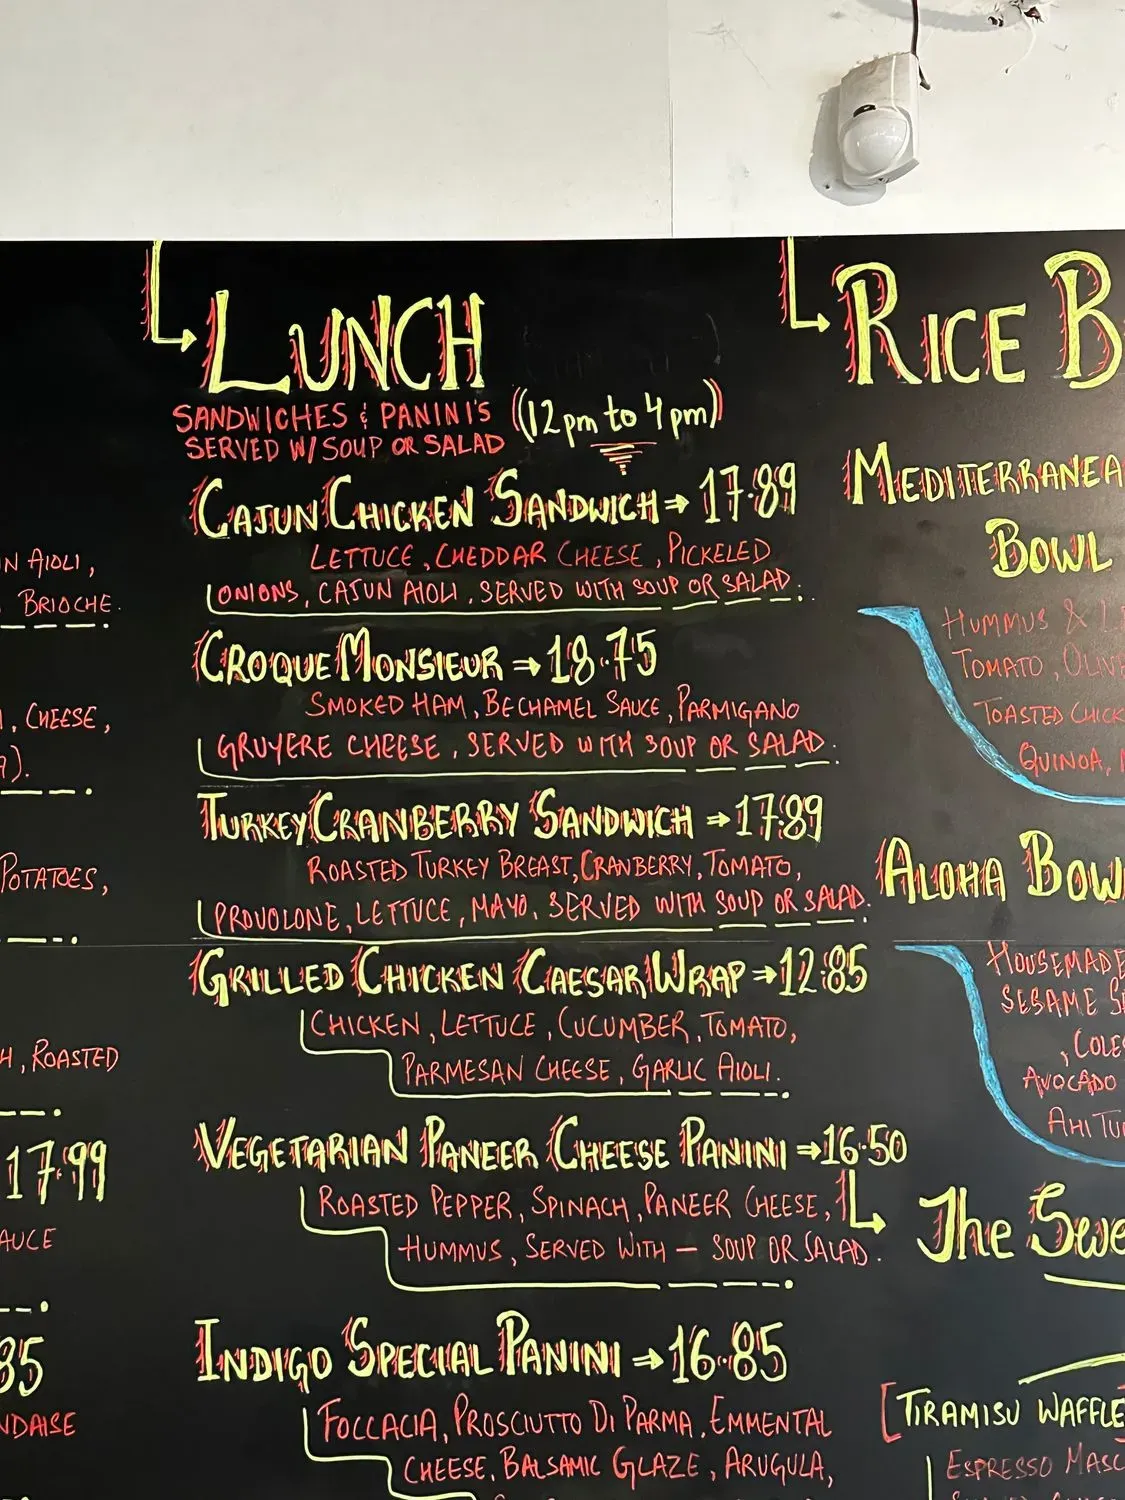 N AIOLI,
BRIOCHE.
, CHEESE,
POTATOES,
H, ROASTED
17.99
AUCE
85
NDAISE
LUNCH
SANDWICHES & PANINI'S
SERVED W/ SOUP OR SALAD
(12pm to 4pm)
CAJUN CHICKEN SANDWICH → 17.89
LETTUCE, CHEDDAR CHEESE, PICKELED
ONIONS, CAJUN AIOLI, SERVED WITH SOUP OR SALAD.
CROQUE MONSIEUR → 18.75
SMOKED HAM, BECHAMEL SAUCE, PARMIGANO
GRUYERE CHEESE, SERVED WITH SOUP OR SALAD.
TURKEY CRANBERRY SANDWICH → 17.89
ROASTED TURKEY BREAST, CRANBERRY, TOMATO,
PROVOLONE, LETTUCE, MAYO, SERVED WITH SOUP OR SALAD.
GRILLED CHICKEN CAESAR WRAP → 12.85
CHICKEN, LETTUCE, CUCUMBER, TOMATO,
PARMESAN CHEESE, GARLIC AIOLI.
VEGETARIAN PANEER CHEESE PANINI → 16.50
ROASTED PEPPER, SPINACH, PANEER CHEESE,
HUMMUS, SERVED WITH — SOUP OR SALAD.
INDIGO SPECIAL PANINI → 16.85
FOCCACIA, PROSCIUTTO DI PARMA, EMMENTAL
CHEESE, BALSAMIC GLAZE, ARUGULA,
RICE B
MEDITERRANEA
BOWL
HUMMUS &
TOMATO, OLIV
TOASTED CHICK
QUINOA,
ALOHA BOW
HOUSEMADE
SESAME S
, COLES
AVOCADO
AHI TU
The Swe
[TIRAMISU WAFFLE
ESPRESSO MASC